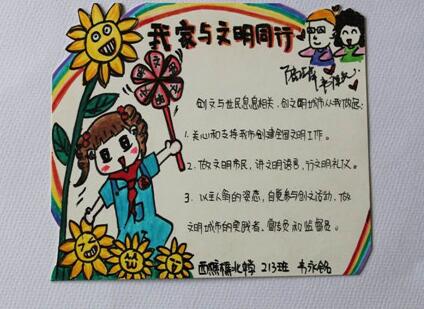 我家与文明同行
创文与世民息息相关,创文明城市从我做起:
1. 关心和支持我市创建全国文明工作。
2. 做文明市民,讲文明语言,行文明礼仪。
3. 以主人翁的姿态,自觉参与创文活动,做
文明城市的实践者、宣传员和监督员。
213班 韦永铭